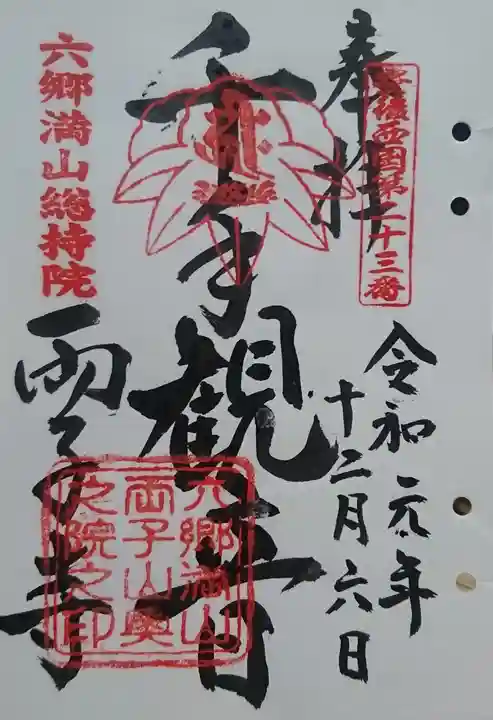 奉拝
豊後西国第二十三番
令和元年
十二月六日
千手観音
六郷満山総持院
霊仙寺
六郷満山
両子山奥
之院之印